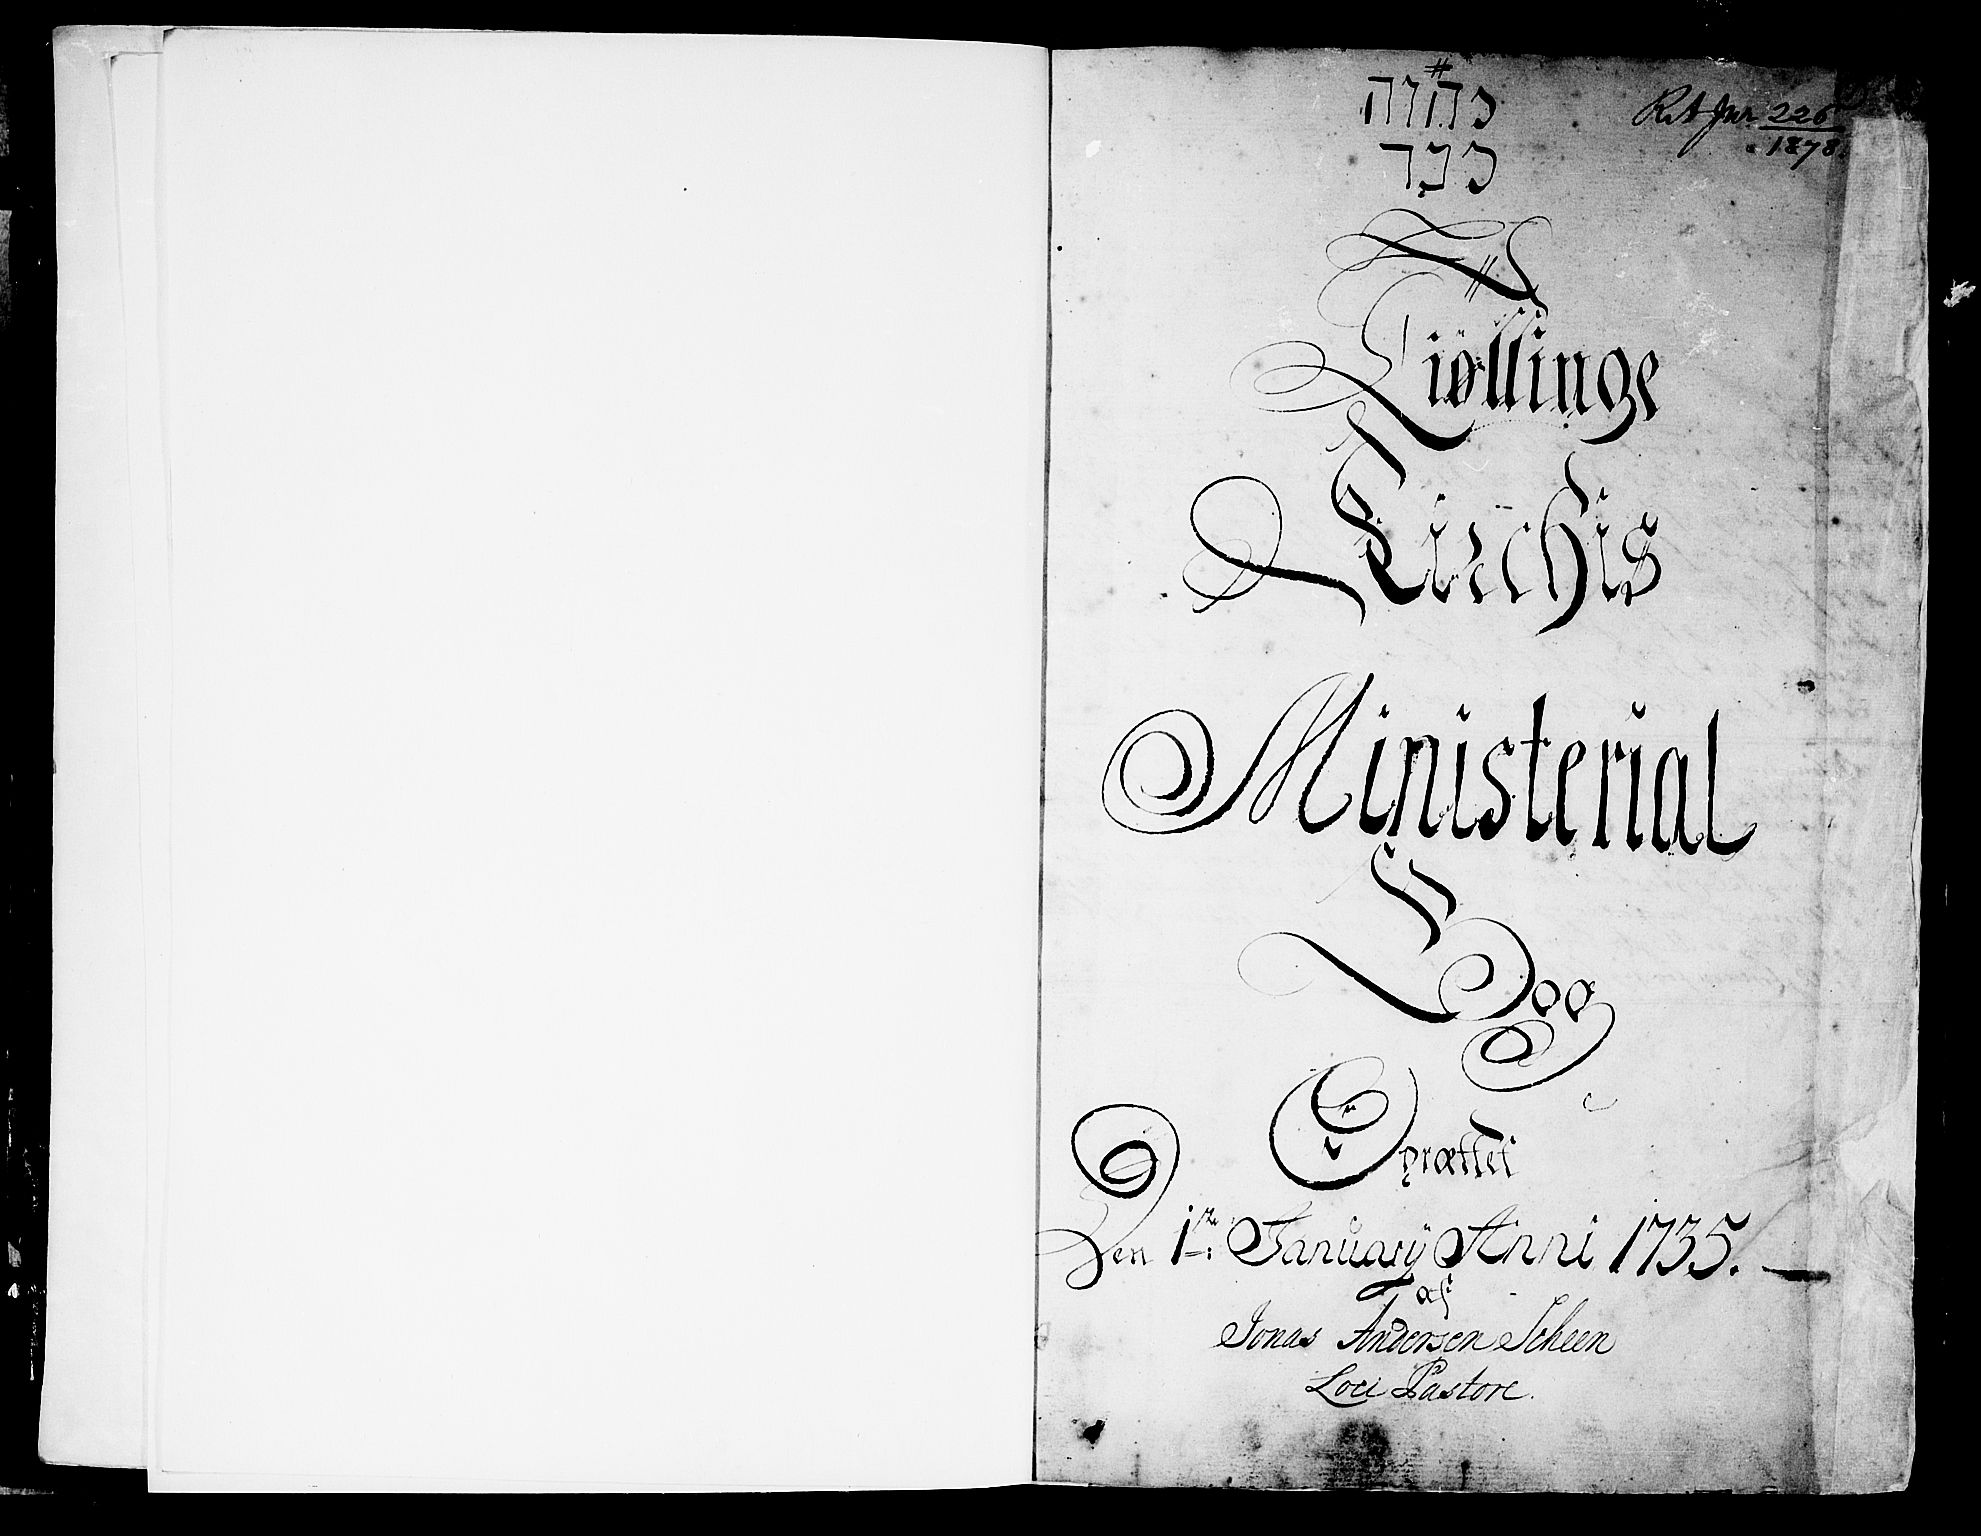 כהוה
כבד
R.A. Jnr 226
1878
Tiøllinge
Kirchis
Ministerial
Bog
Oprættet
Den 1ste January Anni 1735.
af
Jonas Andersen Scheen
Loci Pastore.